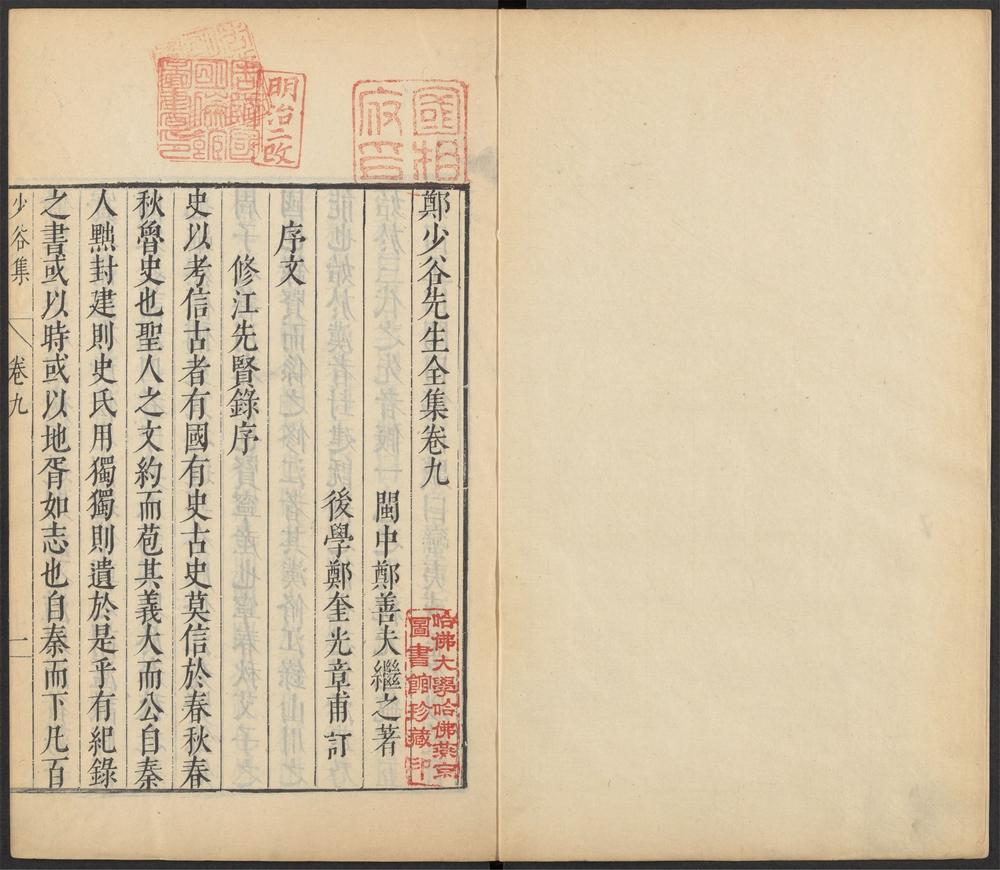 鄭少谷先生全集卷九
閩中鄭善夫繼之著
後學鄭奎光章甫訂
序文
修江先賢錄序
史以考信古者有國有史古史莫信於春秋春
秋魯史也聖人之文約而苞其義大而公自秦
人黜封建則史氏用獨獨則遺於是乎有紀錄
之書或以時或以地胥如志也自秦而下凡百
少谷集
卷九
一
明治二改
哈佛大學哈佛燕京
圖書館珍藏印